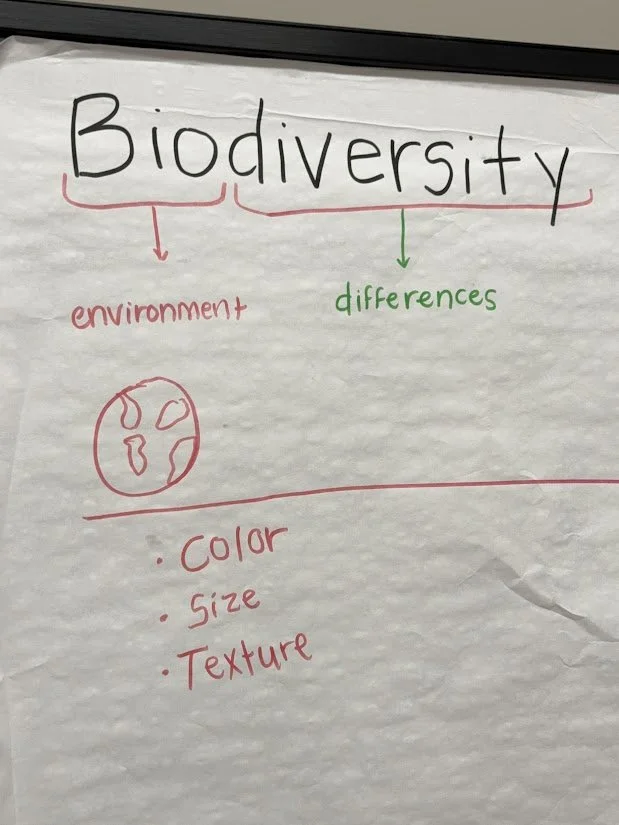 Biodiversity
environment differences
· Color
· Size
· Texture